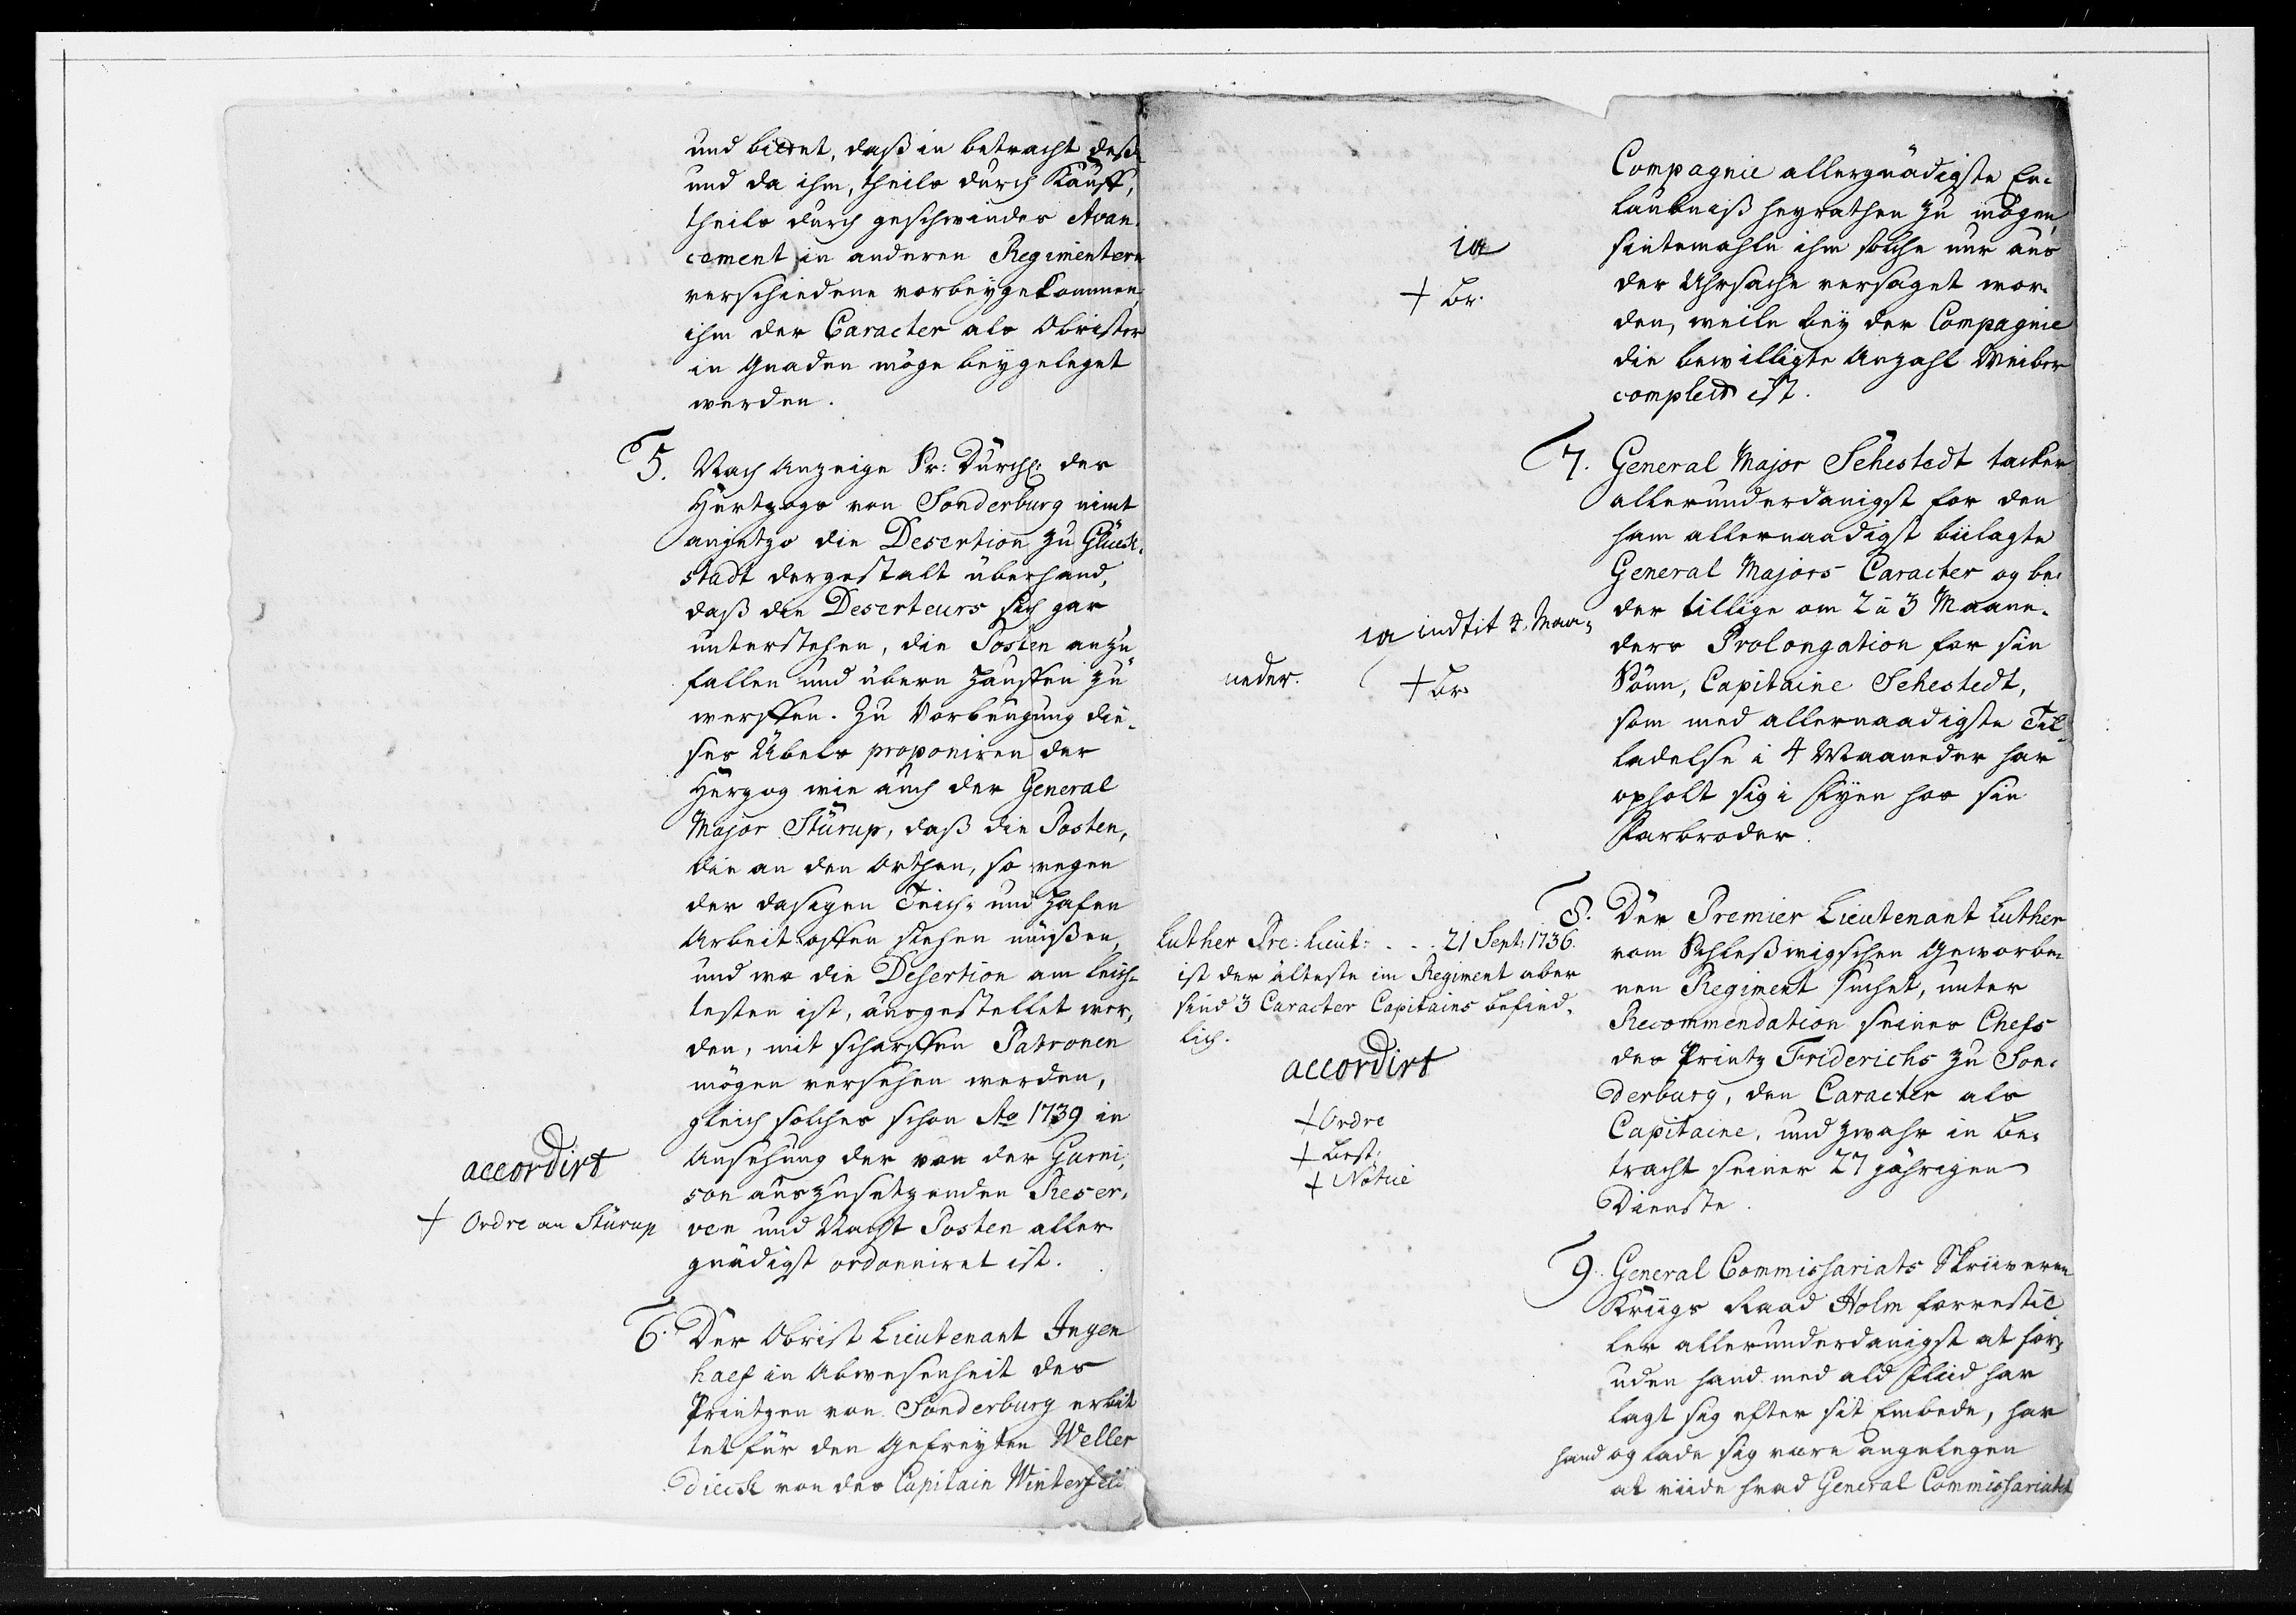 und bittet, daß in betracht deß
und da ihm, theils durch Kauff,
theils durch geschwindes Avan-
cement in anderen Regimentern
verschiedene vorbeygekommen,
ihm der Caracter als Obrister
in Gnaden möge beygeleget
werden.
5. Nach Anzeige Sr: Durchl: des
Hertzogs von Sonderburg nimt
anjetzo die Desertion zu Glück-
stadt dergestalt überhand,
daß die Deserteurs sich gar
unterstehen, die Posten anzu
fallen und übern Hauffen zu
werffen. Zu Vorbeugung die-
ses Übels proponiren der
Hertzog wie auch der General
Major Stürup, daß die Posten,
die an den Orthen, so wegen
der dasigen Teich- und Hafen
Arbeit offen stehen müßen,
und wo die Desertion am leich-
testen ist, ausgestellet wer-
den, mit scharffen Patronen
mögen versehen werden,
gleich solches schon Ao 1739 in
Ansehung der von der Garni-
son auszusetzenden Reser-
ven und Nacht Posten aller
gnädigst ordonniret ist.
accordirt
+ Ordre an Stürup
6. Der Obrist Lieutenant Ingen
haef in Abwesenheit des
Printzen von Sonderburg erbit
tet für den Gefreyten Weller
dieck von des Capitain Winterfeld
Compagnie allergnädigste Er-
laubniß heyrathen zu mögen,
sintemahln ihm solche nur aus
der Uhrsache versaget wor-
den, weiln bey der Compagnie
die bewilligte Anzahl Weiber
complett ist.
ia
+ Br.
7. General Major Sehestedt tacker
allerunderdanigst for den
ham allernaadigst biilagte
General Majors Caracter og be-
der tillige om 2 à 3 Maane-
ders Prolongation for sin
Sönn, Capitaine Sehestedt,
som med allernaadigste Til-
ladelse i 4 Maaneder har
opholt sig i Fyen hos sin
Farbroder.
ia indtil 4 Maa-
neder.
+ Br.
8. Der Premier Lieutenant Luther
vom Schleßwigschen Geworbe-
nen Regiment suchet, unter
Recommendation seines Chefs
des Printz Friderichs zu Son-
derburg, den Caracter als
Capitaine, und zwahr in be-
tracht seiner 27 jährigen
Dienste.
Luther Pre: Lieut: . . . 21 Sept: 1736.
ist der älteste im Regiment aber
sind 3 Caracter Capitains befind-
lich.
accordirt
+ Ordre
+ Best.
+ Notice
9. General Commissariats Skriiveren
Kriigs Raad Holm forrestil
ler allerunderdanigst at for-
uden hand med ald Fliid har
lagt sig efter sit Embede, har
hand og lade sig være angelegen
at viide hvad General Commissariatet